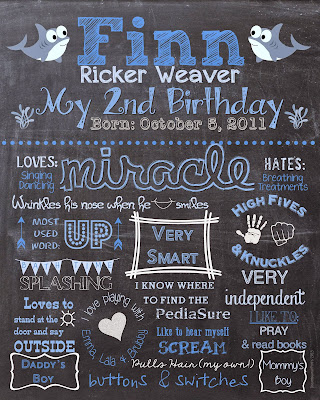 Finn
Ricker Weaver
My 2nd Birthday
Born: October 5, 2011
LOVES:
Singing
Dancing
miracle
HATES:
Breathing
Treatments
Wrinkles his nose when he smiles
MOST
USED
WORD:
UP
VERY
SMART
HIGH FIVES
& KNUCKLES
SPLASHING
I KNOW WHERE
TO FIND THE
PEDIASURE
VERY
independent
Loves to
stand at the
door and say
OUTSIDE
love playing with
Emma, Lala & Brinkley
Like to hear myself
SCREAM
I LIKE TO:
PRAY
& read books
DADDY'S
BOY
Pulls Hair (my own!)
buttons & switches
Mommy's
Boy